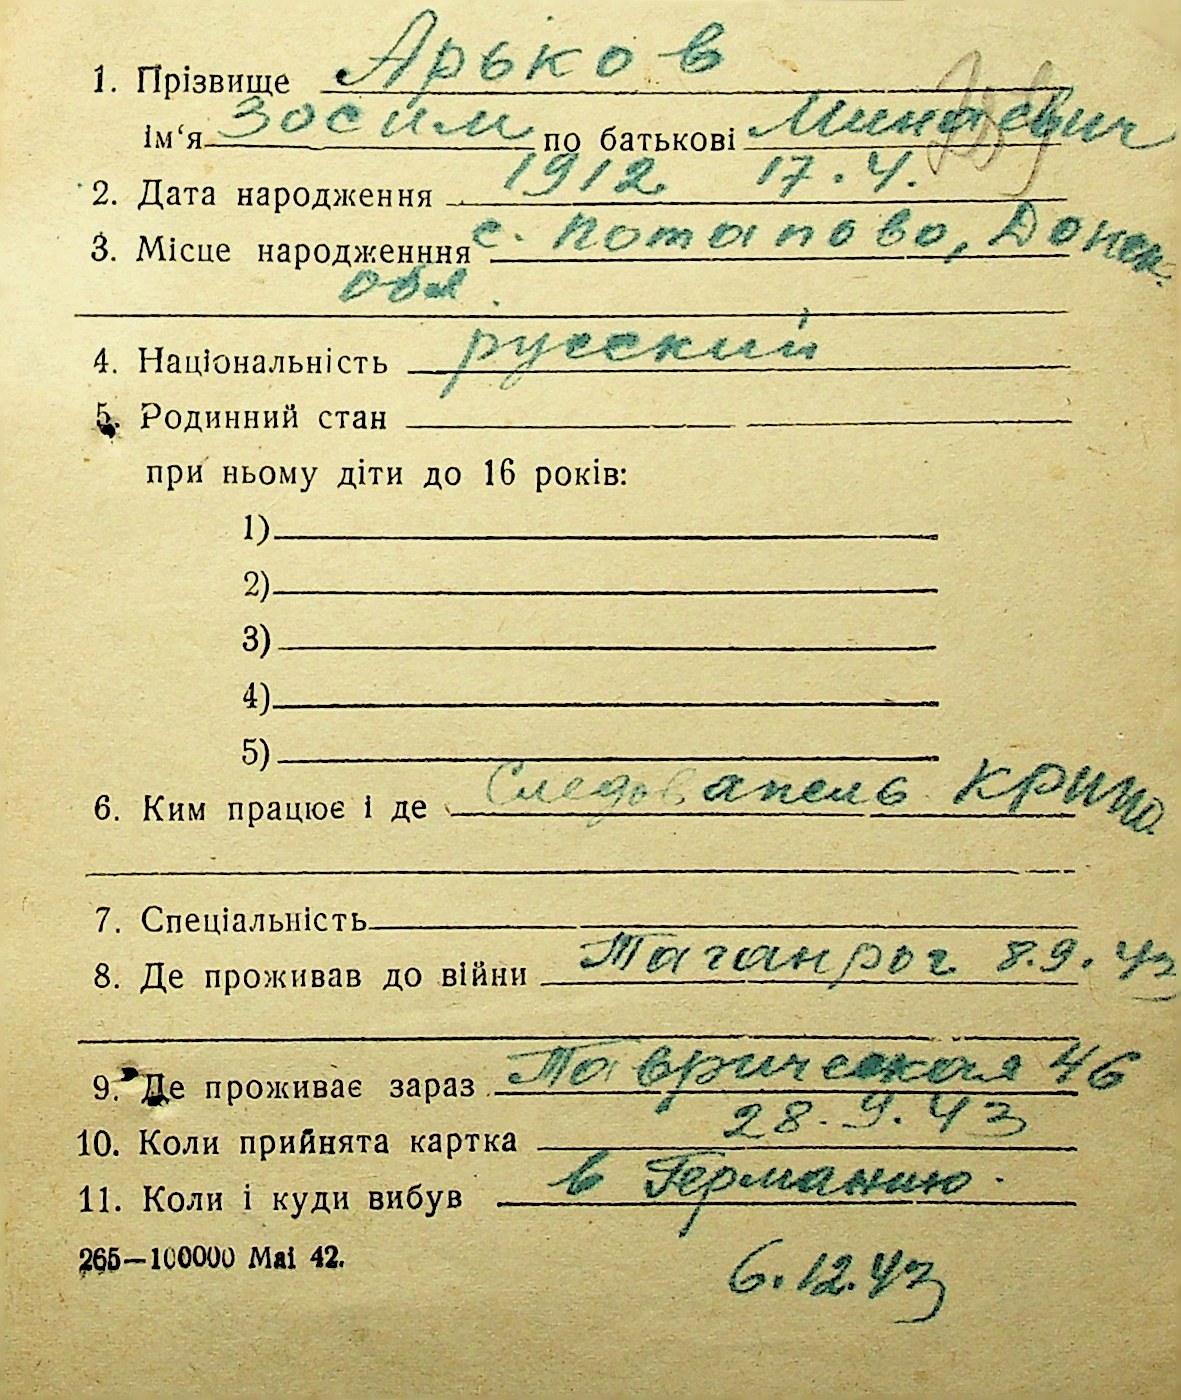 1. Прізвище Арьков
ім‘я Зосим по батькові Минаевич
2. Дата народження 1912 17.4.
3. Місце народженння с. Потапово, Донск.
обл.
4. Національність русский
5. Родинний стан
при ньому діти до 16 років:
1)
2)
3)
4)
5)
6. Ким працює і де Следователь КРИПО
7. Спеціальність
8. Де проживав до війни Таганрог 8.9.43
9. Де проживає зараз Таврическая 46
10. Коли прийнята картка 28.9.43
11. Коли і куди вибув в Германию.
265—100000 Маі 42.
6.12.43